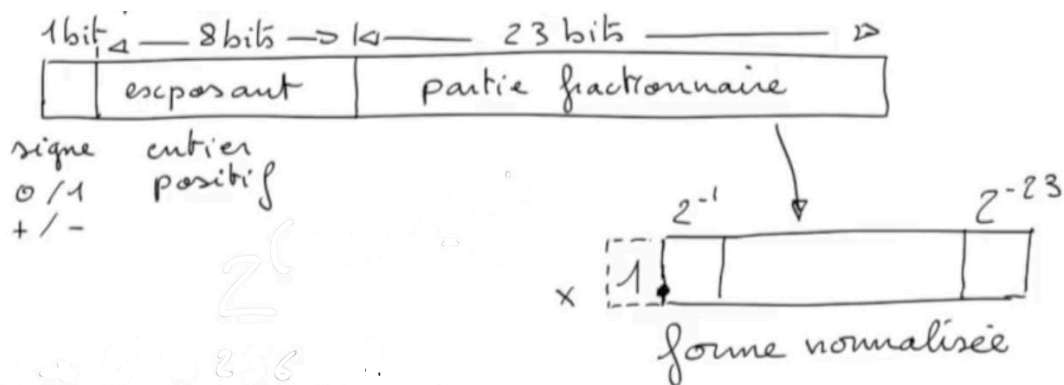 1 bit 8 bits 23 bits
exposant partie fractionnaire
signe entier
0/1 positif
+/-
2⁻¹ 2⁻²³
x 1
forme normalisée